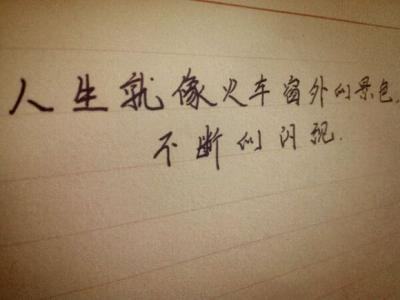 人生就像火车窗外的景色,
不断的闪现.